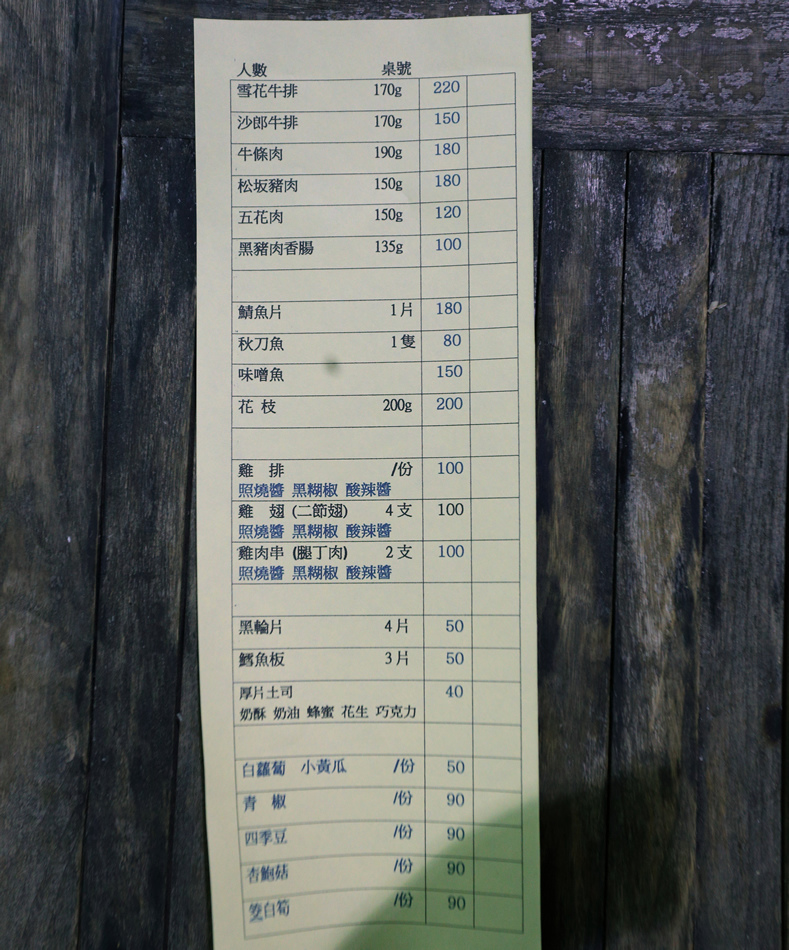 人數 桌號
雪花牛排 170g 220
沙郎牛排 170g 150
牛條肉 190g 180
松坂豬肉 150g 180
五花肉 150g 120
黑豬肉香腸 135g 100
鯖魚片 1片 180
秋刀魚 1隻 80
味噌魚 150
花 枝 200g 200
雞 排 /份 100
照燒醬 黑糊椒 酸辣醬
雞 翅 (二節翅) 4支 100
照燒醬 黑糊椒 酸辣醬
雞肉串 (腿丁肉) 2支 100
照燒醬 黑糊椒 酸辣醬
黑輪片 4片 50
鱈魚板 3片 50
厚片土司 40
奶酥 奶油 蜂蜜 花生 巧克力
白蘿蔔 小黃瓜 /份 50
青 椒 /份 90
四季豆 /份 90
杏鮑菇 /份 90
筊白筍 /份 90